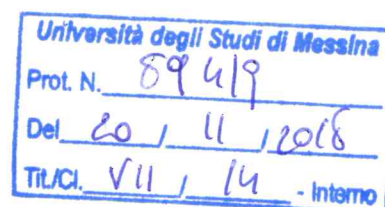 Università degli Studi di Messina
Prot. N. 89419
Del 20 / 11 / 2018
Tit./Cl. VII / 14 - Interno